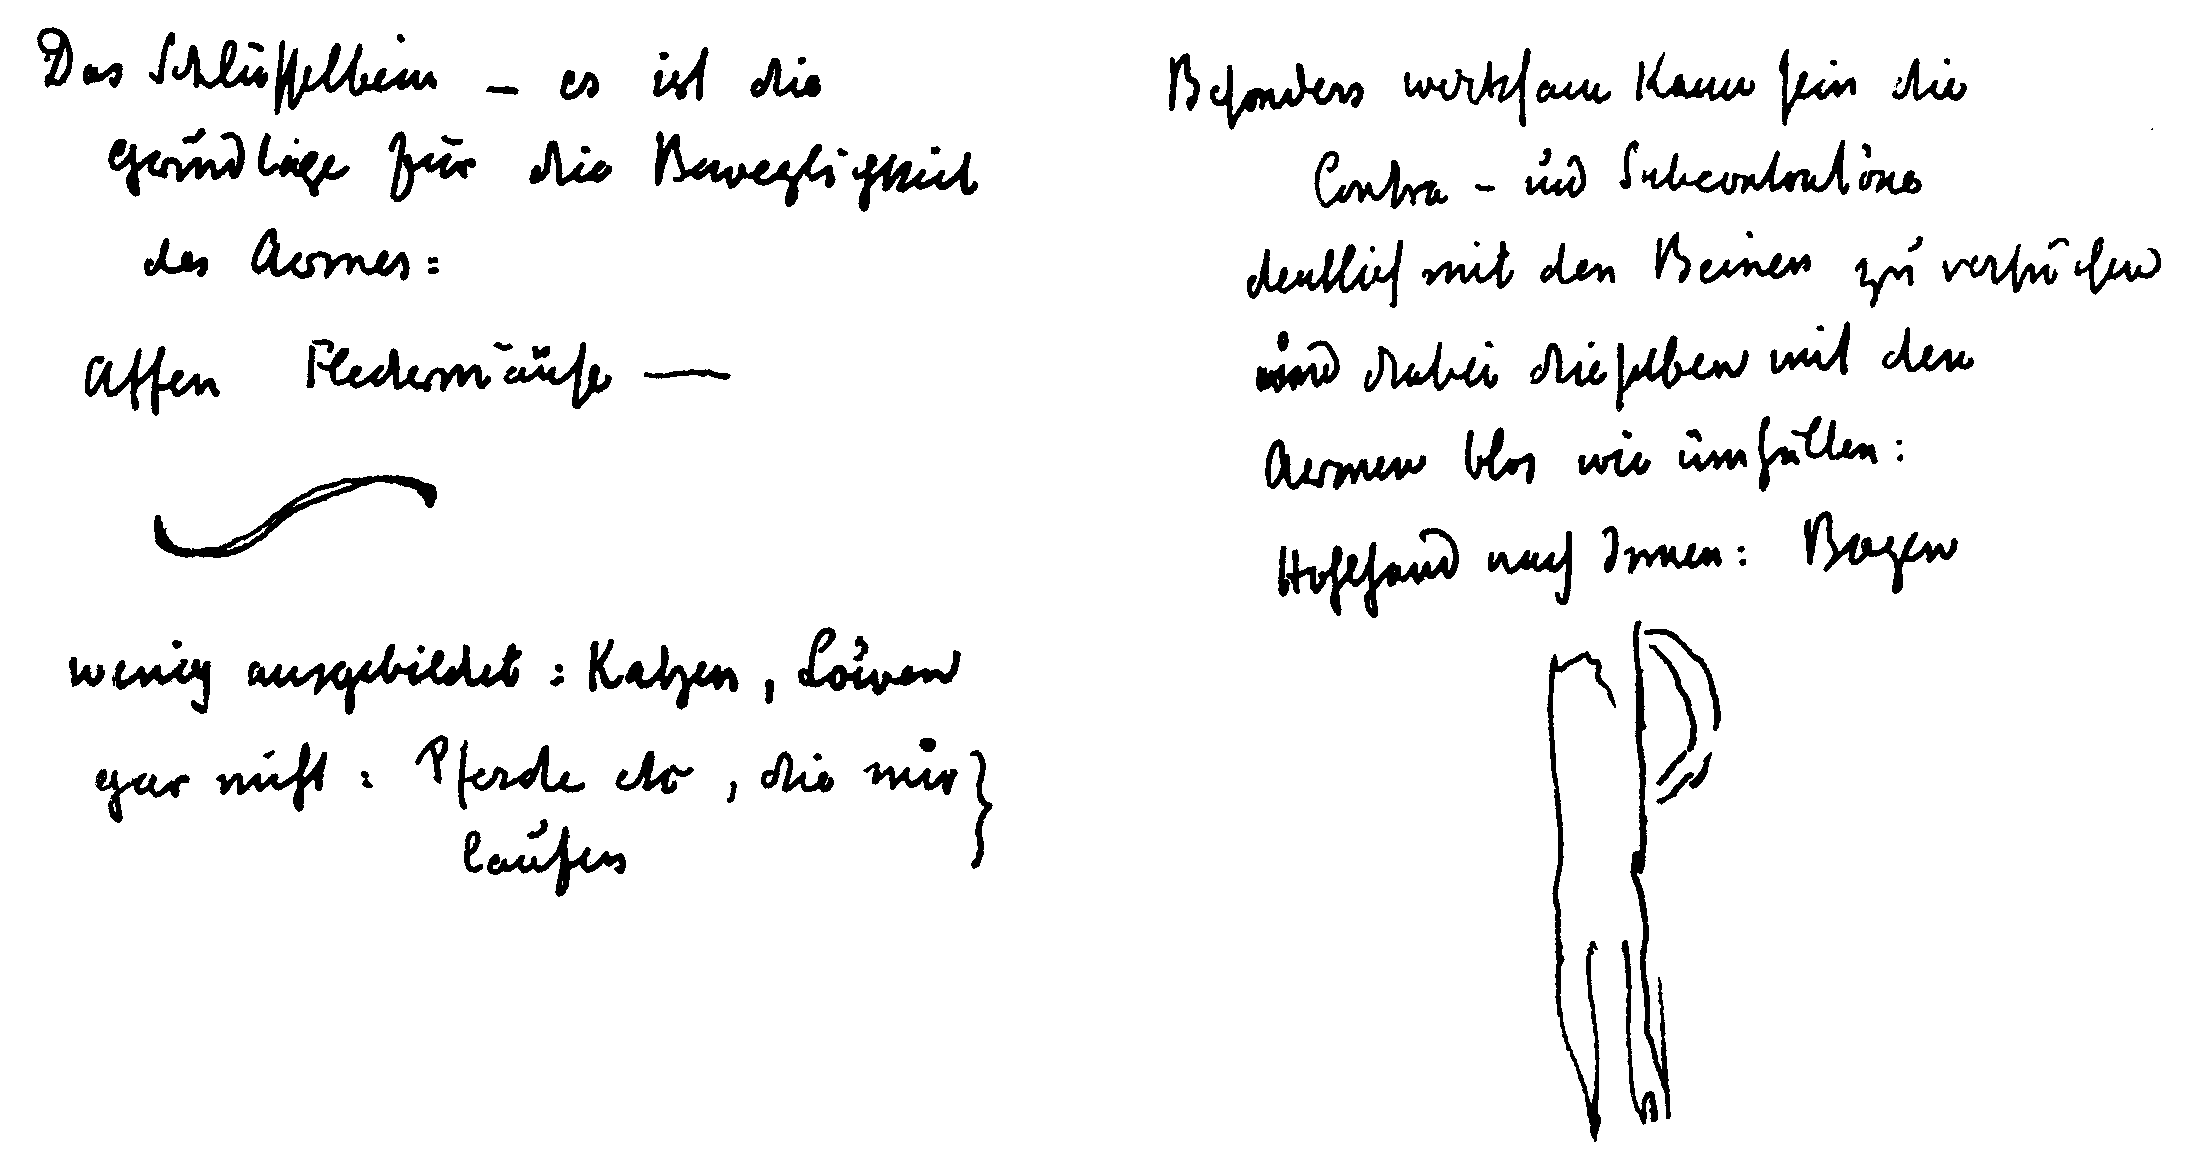 Das Schlüsselbein – es ist die
Grundlage für die Beweglichkeit
des Armes:
Affen Fledermäuse —
wenig ausgebildet: Katzen, Löwen
gar nicht: Pferde etc, die nur }
laufen
Besonders wirksam kann sein die
Contra – und Subcontratöne
deutlich mit den Beinen zu
und dabei dieselben mit den
Armen blos wie umhüllen:
Hohlhand nach Innen: Bogen